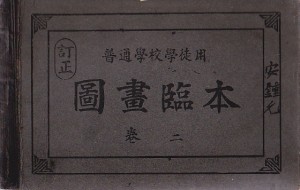 訂正
普通學校學徒用
圖畫臨本
卷二
安鍾